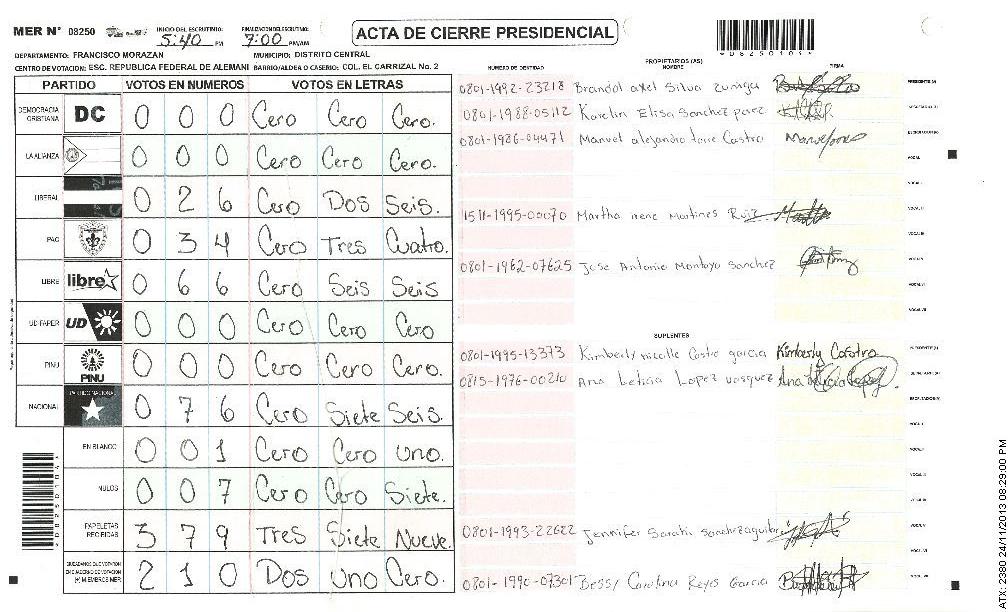 MER N° 08250
INICIO DEL ESCRUTINIO: 5:40 PM
FINALIZACION ESCRUTINIO: 7:00 PM/AM
ACTA DE CIERRE PRESIDENCIAL
DEPARTAMENTO: FRANCISCO MORAZAN MUNICIPIO: DISTRITO CENTRAL
CENTRO DE VOTACION: ESC. REPUBLICA FEDERAL DE ALEMANI BARRIO/ALDEA O CASERIO: COL. EL CARRIZAL No. 2
PARTIDO VOTOS EN NUMEROS VOTOS EN LETRAS
DEMOCRACIA CRISTIANA DC 0 0 0 Cero Cero Cero.
LA ALIANZA 0 0 0 Cero Cero Cero.
LIBERAL 0 2 6 Cero Dos Seis.
PAC 0 3 4 Cero Tres Cuatro.
LIBRE libre 0 6 6 Cero Seis Seis
UD-FAPER UD 0 0 0 Cero Cero Cero
PINU PINU 0 0 0 Cero Cero Cero.
NACIONAL PARTIDO NACIONAL 0 7 6 Cero Siete Seis.
EN BLANCO 0 0 1 Cero Cero uno.
NULOS 0 0 7 Cero Cero Siete.
PAPELETAS RECIBIDAS 3 7 9 Tres Siete Nueve.
CIUDADANOS QUE VOTARON EN CUADERNO DE VOTACION (+) MIEMBROS MER 2 1 0 Dos uno Cero.
PROPIETARIOS (AS)
NUMERO DE IDENTIDAD NOMBRE FIRMA
0801-1992-23218 Brandol axel Silva zuniga
0801-1988-05112 Karelin Elisa Sanchez perez
0801-1986-04471 Manuel alejandro torre Castro
1511-1995-00070 Martha irene Martines Ruiz
0801-1962-07625 Jose Antonio Montoya Sanchez
SUPLENTES
0801-1995-13373 Kimberly nicolle Castro garcia Kimberly Castro
0815-1976-00210 Ana Leticia Lopez vasquez
0801-1993-22622 Jennifer Sarahi Sanchez aguilar
0801-1990-07301 Bessy Carolina Reyes Garcia
ATX: 2390 24/11/2013 08:29:00 PM